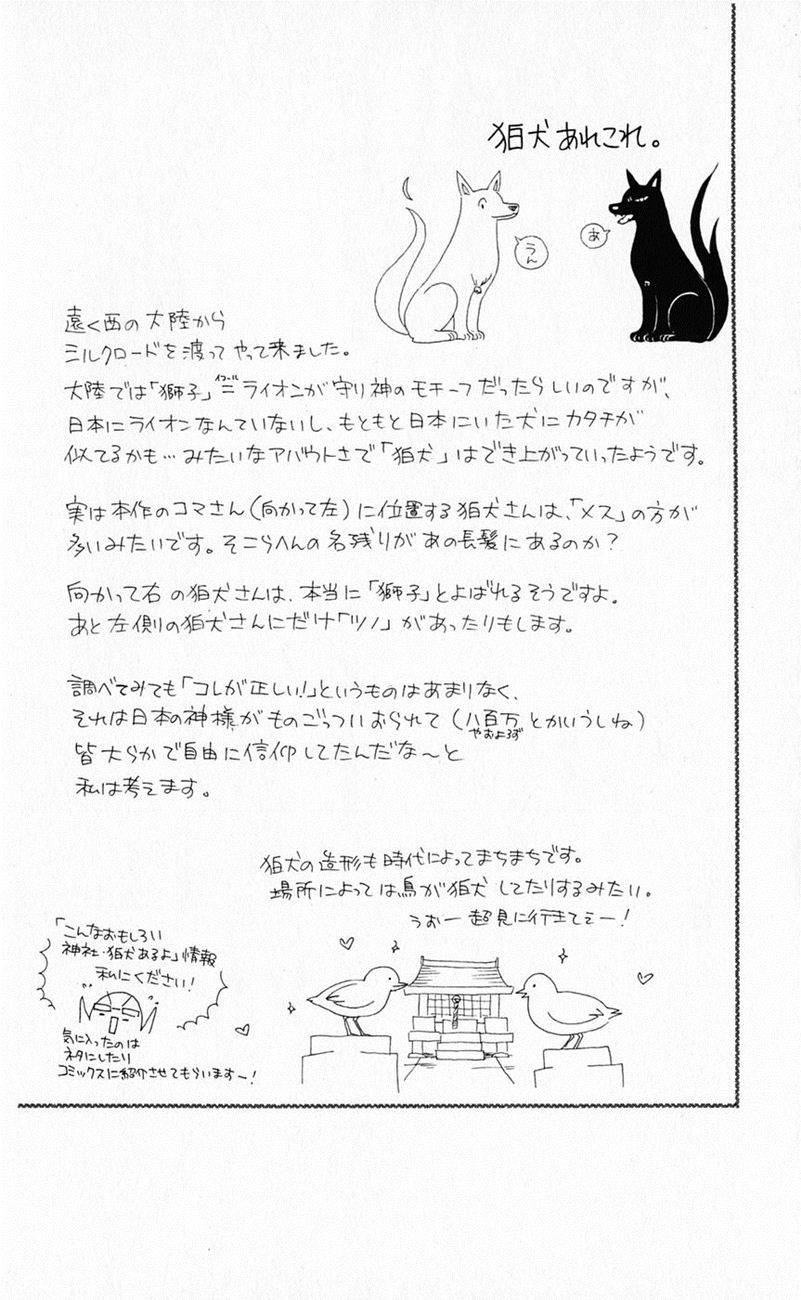 狛犬あれこれ。
うん
あ
遠く西の大陸から
シルクロードを渡ってやって来ました。
大陸では「獅子」イコール＝ライオンが守り神のモチーフだったらしいのですが、
日本にライオンなんていないし、もともと日本にいた犬にカタチが
似てるかも…みたいなアバウトさで「狛犬」はでき上がっていったようです。
実は本作のコマさん(向かって左)に位置する狛犬さんは、「メス」の方が
多いみたいです。そこらへんの名残りがあの長髪にあるのか？
向かって右の狛犬さんは、本当に「獅子」とよばれるそうですよ。
あと左側の狛犬さんにだけ「ツノ」があったりもします。
調べてみても「コレが正しい！」というものはあまりなく、
それは日本の神様がものごっついおられて(八百万とかいうしね)
やおよろず
皆大らかで自由に信仰してたんだな〜と
私は考えます。
狛犬の造形も時代によってまちまちです。
場所によっては鳥が狛犬してたりするみたい。
うおー超見に行きてぇー！
「こんなおもしろい
神社・狛犬あるよ」情報
私にください！
気に入ったのは
ネタにしたり
コミックスに紹介させてもらいます〜！